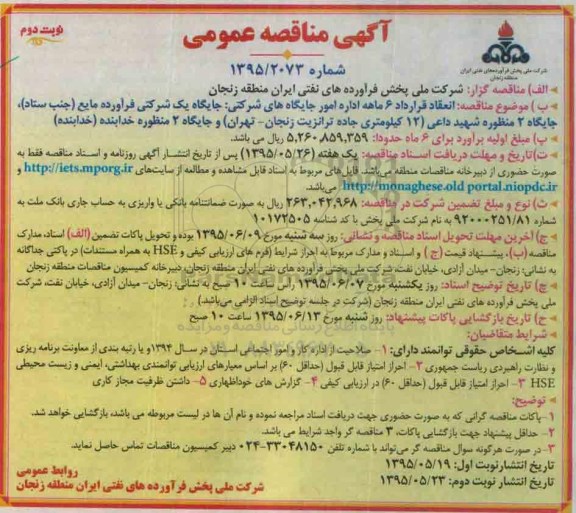 نوبت دوم
آگهی مناقصه عمومی
شماره ۱۳۹۵/۲۰۷۳
شرکت ملی پخش فرآورده‌های نفتی ایران
منطقه زنجان
الف) مناقصه گزار: شرکت ملی پخش فرآورده های نفتی ایران منطقه زنجان
ب) موضوع مناقصه: انعقاد قرارداد ۶ ماهه اداره امور جایگاه های شرکتی: جایگاه یک شرکتی فرآورده مایع (جنب ستاد)،
جایگاه ۲ منظوره شهید داعی (۱۲ کیلومتری جاده ترانزیت زنجان - تهران) و جایگاه ۲ منظوره خدابنده (خدابنده)
پ) مبلغ اولیه برآورد برای ۶ ماه حدودا: ۵,۲۶۰,۸۵۹,۳۵۹ ریال می باشد.
ت) تاریخ و مهلت دریافت اسناد مناقصه: یک هفته (۱۳۹۵/۰۵/۲۶) پس از تاریخ انتشار آگهی روزنامه و اسناد مناقصه فقط به
صورت حضوری از دبیرخانه مناقصات منطقه می‌باشد. فایل‌های مربوط به اسناد قابل مشاهده و مطالعه از سایت‌های http://iets.mporg.ir و
http://monaghese.old portal.niopdc.ir می‌باشد.
ث) نوع و مبلغ تضمین شرکت در مناقصه: ۲۶۳,۰۴۲,۹۶۸ ریال به صورت ضمانتنامه بانکی یا واریزی به حساب جاری بانک ملت به
شماره ۹۲۰۰۰۰۲۵۱/۸۱ به نام شرکت ملی پخش با کد شناسه ۱۰۱۷۲۵۰۵
ج) آخرین مهلت تحویل اسناد مناقصه و نشانی: روز سه شنبه مورخ ۱۳۹۵/۰۶/۰۹ بوده و تحویل پاکات تضمین (الف) اسناد، مدارک
مناقصه (ب)، پیشنهاد قیمت (ج) و اسناد و مدارک مربوط به احراز شرایط (فرم های ارزیابی کیفی و HSE به همراه مستندات) در پاکتی جداگانه
به نشانی: زنجان- میدان آزادی، خیابان نفت، شرکت ملی پخش فرآورده های نفتی ایران منطقه زنجان، دبیرخانه کمیسیون مناقصات منطقه زنجان
چ) تاریخ توضیح اسناد: روز یکشنبه مورخ ۱۳۹۵/۰۶/۰۷ راس ساعت ۱۰ صبح به نشانی: زنجان- میدان آزادی، خیابان نفت، شرکت
ملی پخش فرآورده های نفتی ایران منطقه زنجان (شرکت در جلسه توضیح اسناد الزامی می‌باشد.)
ح) تاریخ بازگشایی پاکات پیشنهاد: روز شنبه مورخ ۱۳۹۵/۰۶/۱۳ ساعت ۱۰ صبح
شرایط متقاضیان:
کلیه اشخاص حقوقی توانمند دارای: ۱- صلاحیت از اداره کار و امور اجتماعی استان در سال ۱۳۹۴و یا رتبه بندی از معاونت برنامه ریزی
و نظارت راهبردی ریاست جمهوری ۲- احراز امتیاز قابل قبول (حداقل ۶۰) بر اساس معیارهای ارزیابی توانمندی بهداشتی، ایمنی و زیست محیطی
HSE ۳- احراز امتیاز قابل قبول (حداقل ۶۰) در ارزیابی کیفی ۴- گزارش های خوداظهاری ۵- داشتن ظرفیت مجاز کاری
توضیح:
۱-پاکات مناقصه گرانی که به صورت حضوری جهت دریافت اسناد مراجعه نموده و نام آن ها در لیست مربوطه می باشد، بازگشایی خواهد شد.
۲- حداقل پیشنهاد جهت بازگشایی پاکات، ۳ مناقصه گر واجد شرایط می باشد.
۳- در صورت هرگونه سوال مناقصه گر می‌تواند با شماره تلفن ۳۳۰۴۸۱۵۰-۰۲۴ دبیر کمیسیون مناقصات تماس حاصل نماید.
تاریخ انتشار نوبت اول: ۱۳۹۵/۰۵/۱۹
تاریخ انتشار نوبت دوم: ۱۳۹۵/۰۵/۲۳
روابط عمومی
شرکت ملی پخش فرآورده های نفتی ایران منطقه زنجان